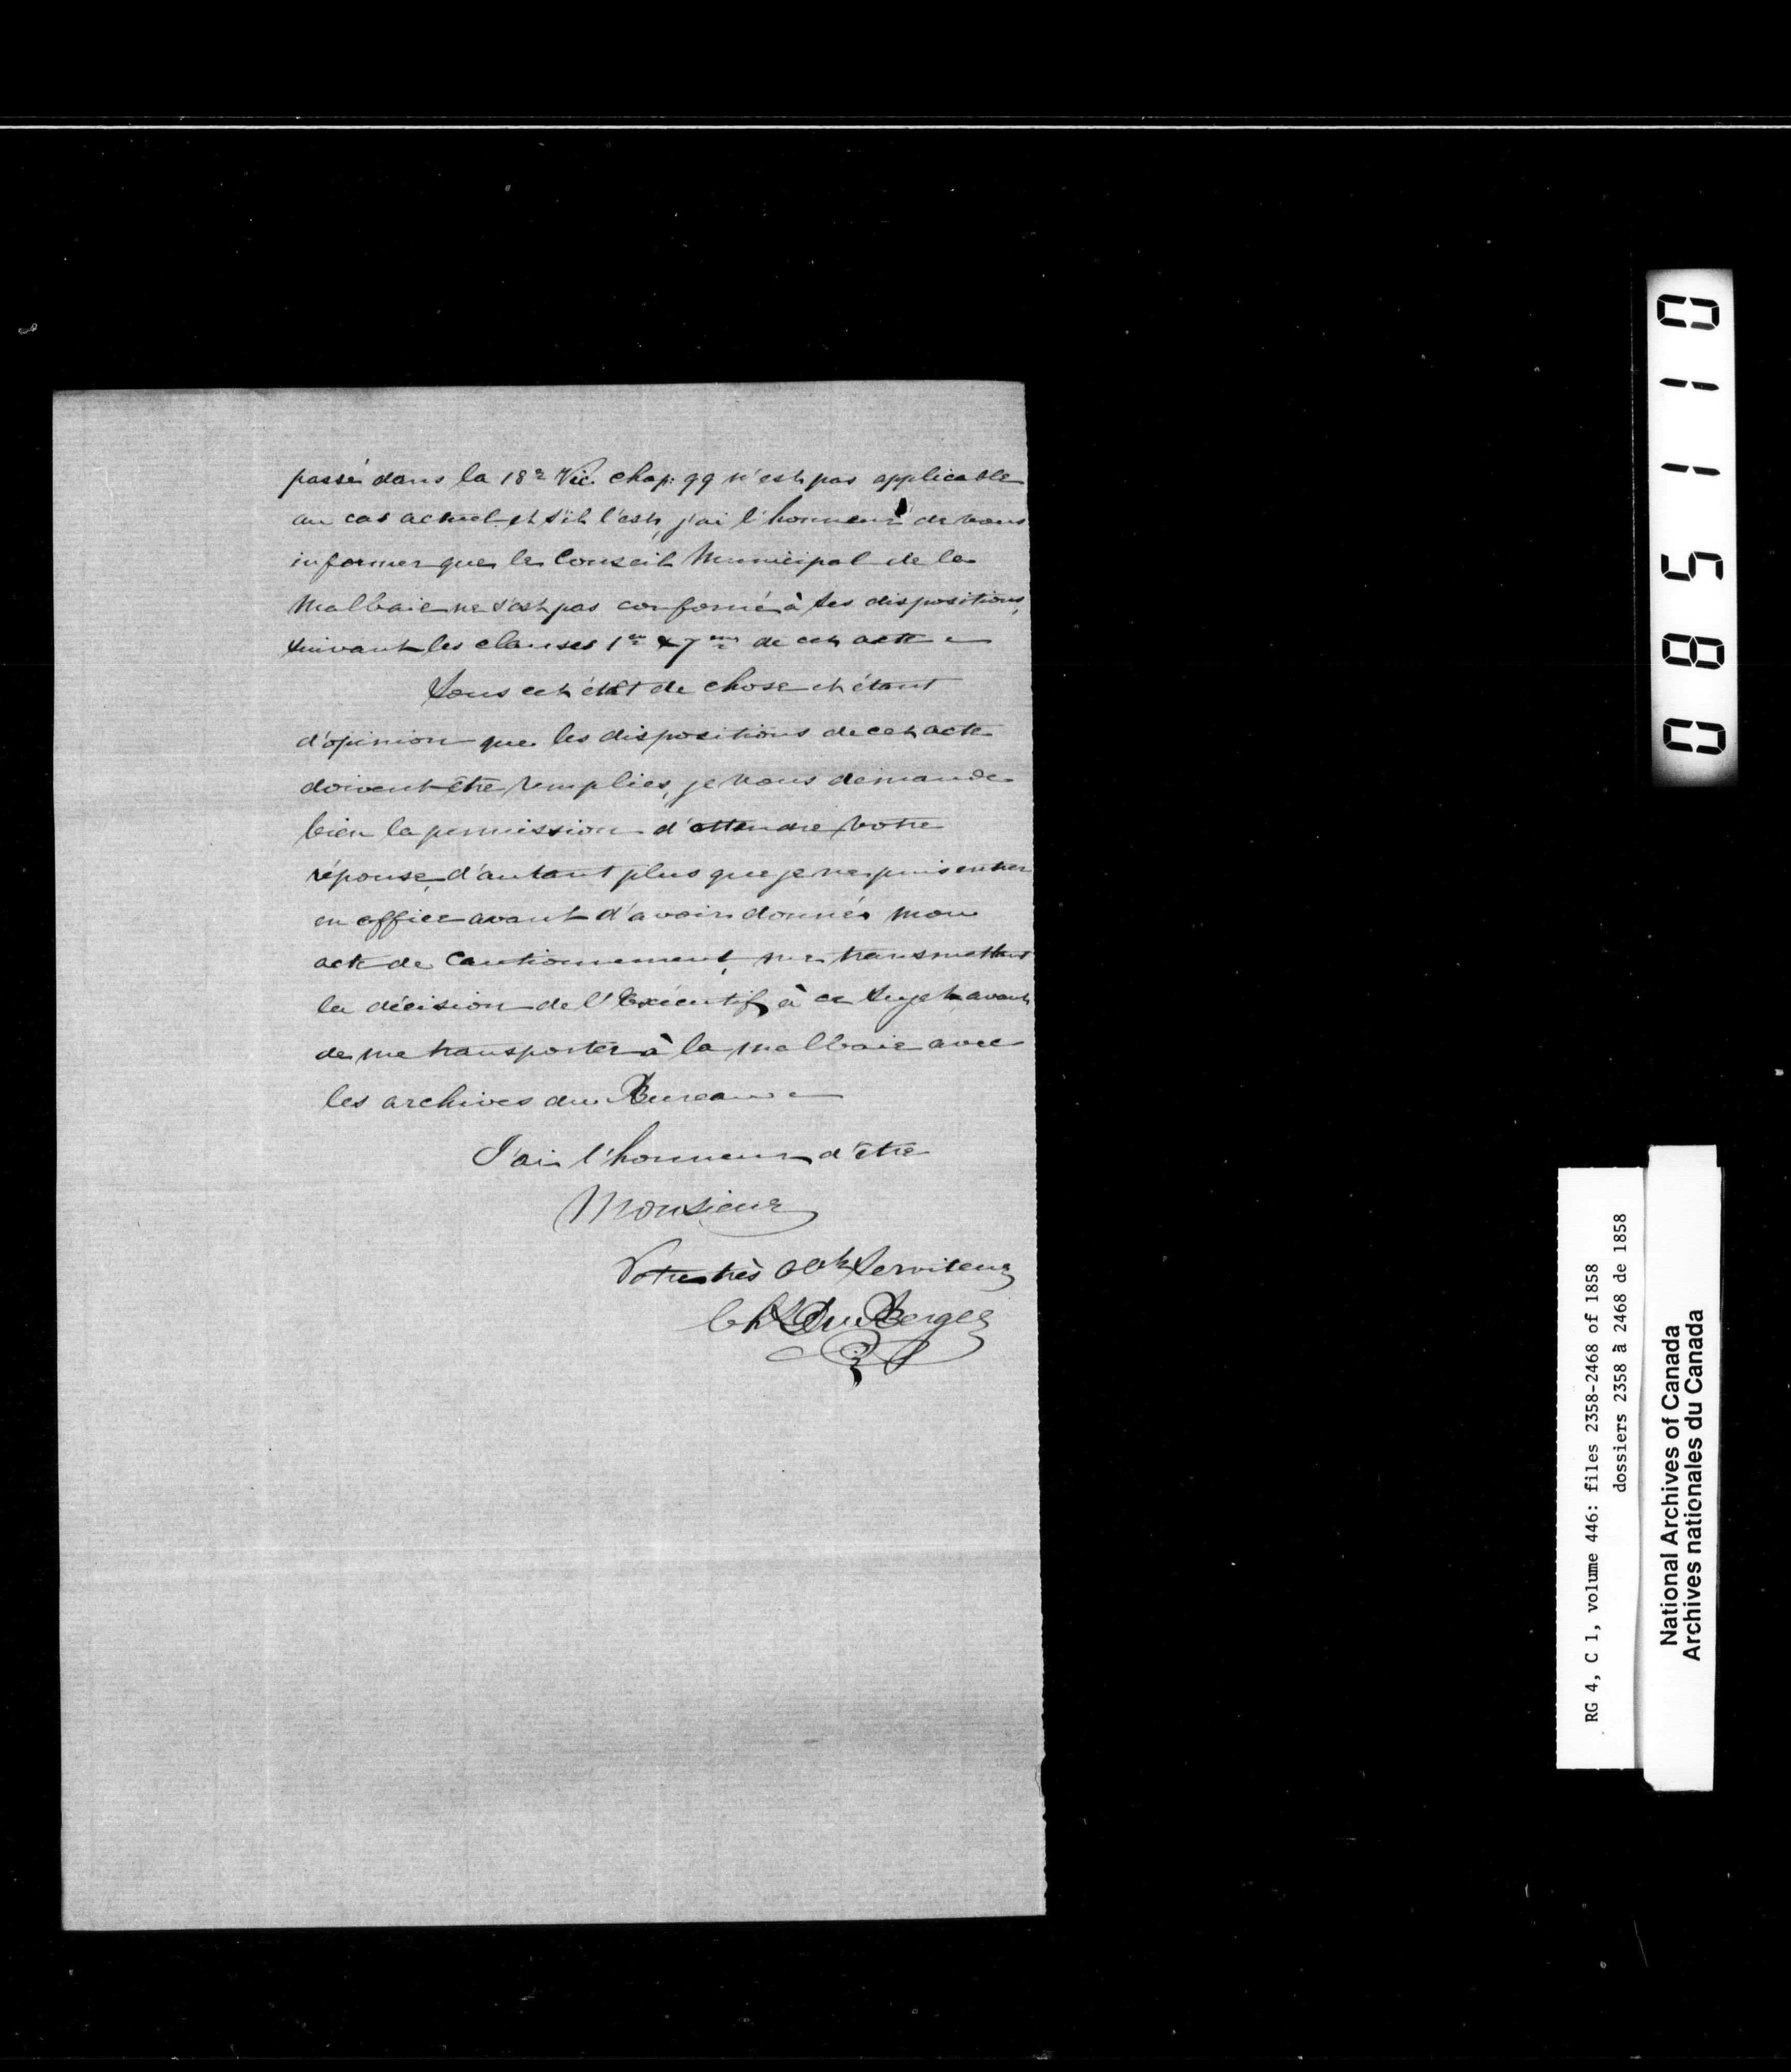 passé dans la 18e Vic. chap: 99 n'est pas applicable
au cas actuel et s'il l'est, j'ai l'honneur de vous
informer que le Conseil Municipal de la
Malbaie ne s'est pas conformé à ses dispositions,
suivant les clauses 1ere & 7eme de cet acte
Sous cet état de chose et étant
d'opinion que les dispositions de cet acte
doivent être remplies, je vous demande
bien la permission d'attendre votre
réponse, d'autant plus que je ne puis entrer
en office avant d'avoir donné mon
acte de Cautionnement, me transmettant
la décision de l'Exécutif à ce sujet avant
de me transporter à la Malbaie avec
les archives du Bureau
J'ai l'honneur d'être
Monsieur
Votre très Obt Serviteur
Ch Du Berger
0 1 1 5 8 0
RG 4, C 1, volume 446: files 2358-2468 of 1858
dossiers 2358 à 2468 de 1858
National Archives of Canada
Archives nationales du Canada